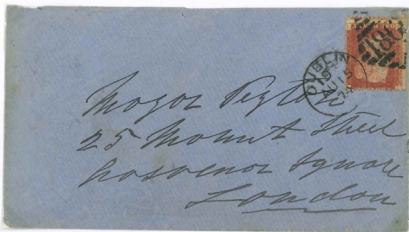 DUBLIN
186
Major Peyton
25 Mount Street
Grosvenor Square
London